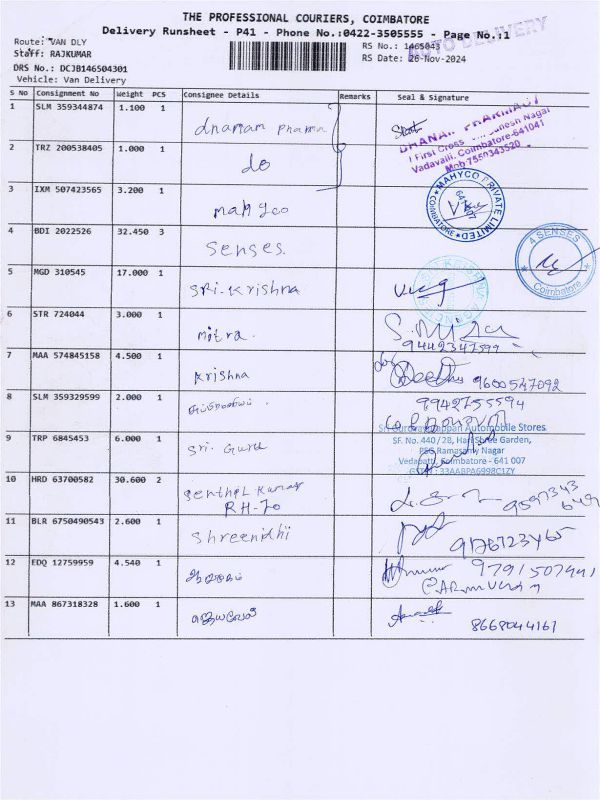 THE PROFESSIONAL COURIERS, COIMBATORE
Delivery Runsheet - P41 - Phone No.:0422-3505555 - Page No.:1
AUTO DELIVERY
Route: VAN DLY
Staff: RAJKUMAR
RS No.: 1465043
RS Date: 26-Nov-2024
DRS No.: DCJB146504301
Vehicle: Van Delivery
S No Consignment No Weight PCS Consignee Details Remarks Seal & Signature
1 SLM 359344874 1.100 1 dhanam pharma
DHANAM PHARMACY
1 First Cross Ganesh Nagar
Vadavalli, Coimbatore-641041
Mob:7550343520
2 TRZ 200538405 1.000 1 do
3 IXM 507423565 3.200 1 mahyco
MAHYCO PRIVATE LIMITED
COIMBATORE
4 BDI 2022526 32.450 3 Senses.
4 SENSES
Coimbatore
5 MGD 310545 17.000 1 Sri.Krishna
6 STR 724044 3.000 1 mitra.
9442347599
7 MAA 574845158 4.500 1 Krishna 9600547092
8 SLM 359329599 2.000 1 9942755594
9 TRP 6845453 6.000 1 Sri Guru
Sri Guruvayurappan Automobile Stores
SF. No. 440/2B, Hari Shree Garden,
PSG Ramasamy Nagar
Vedapatti, Coimbatore - 641 007
GSTIN : 33AABPA6998C1ZY
10 HRD 63700582 30.600 2 Senthil Kumar
RH-70
11 BLR 6750490543 2.600 1 Shreenidhi 9176723465
12 EDQ 12759959 4.540 1 9791507441
13 MAA 867318328 1.600 1 8668044161